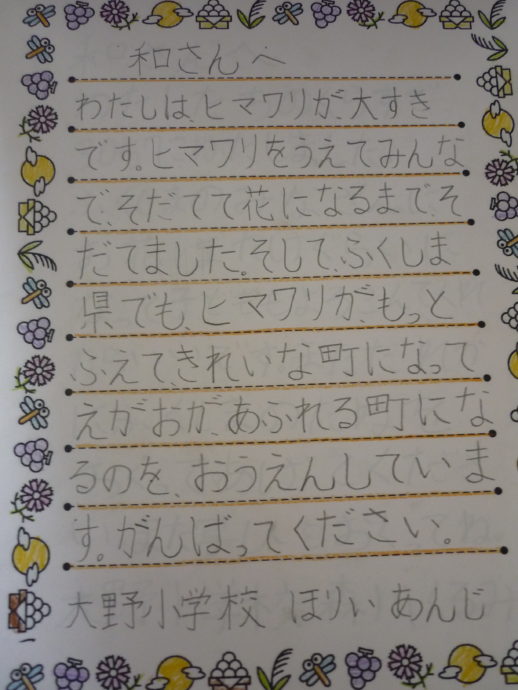 和さんへ
わたしは、ヒマワリが、大すき
です。ヒマワリをうえてみんな
で、そだてて花になるまで、そ
だてました。そして、ふくしま
県でも、ヒマワリが、もっと
ふえて、きれいな町になって
えがおが、あふれる町にな
るのを、おうえんしていま
す。がんばってください。
大野小学校 ほりい あんじ